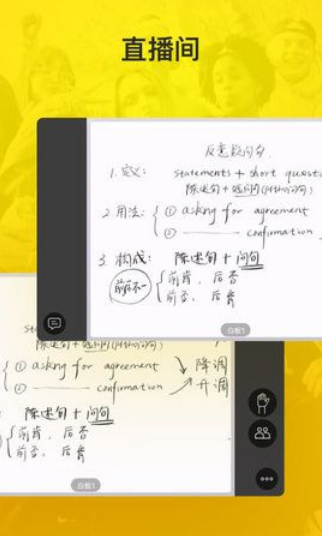 直播间
反意疑问句.
1. 定义: statements + short quest
陈述句 + 疑问句(附加问句)
2. 用法: { ① asking for agreement
② —— confirmation
3. 构成: 陈述句 + 问句
前后不一 { 前肯, 后否
前否, 后肯
白板1
陈述句 + 疑问句(附加问句)
① asking for agreement ↘ 降调
② —— confirmation ↗ 升调
陈述句 + 问句
{ 前肯, 后否
前否, 后肯
白板1